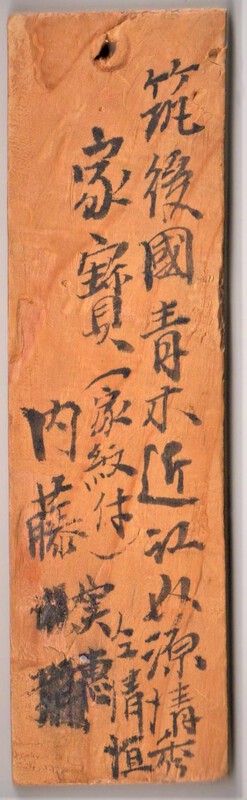 筑後國青木近江源清秀
家寶(家紋付)
清恒
内藤
実恵